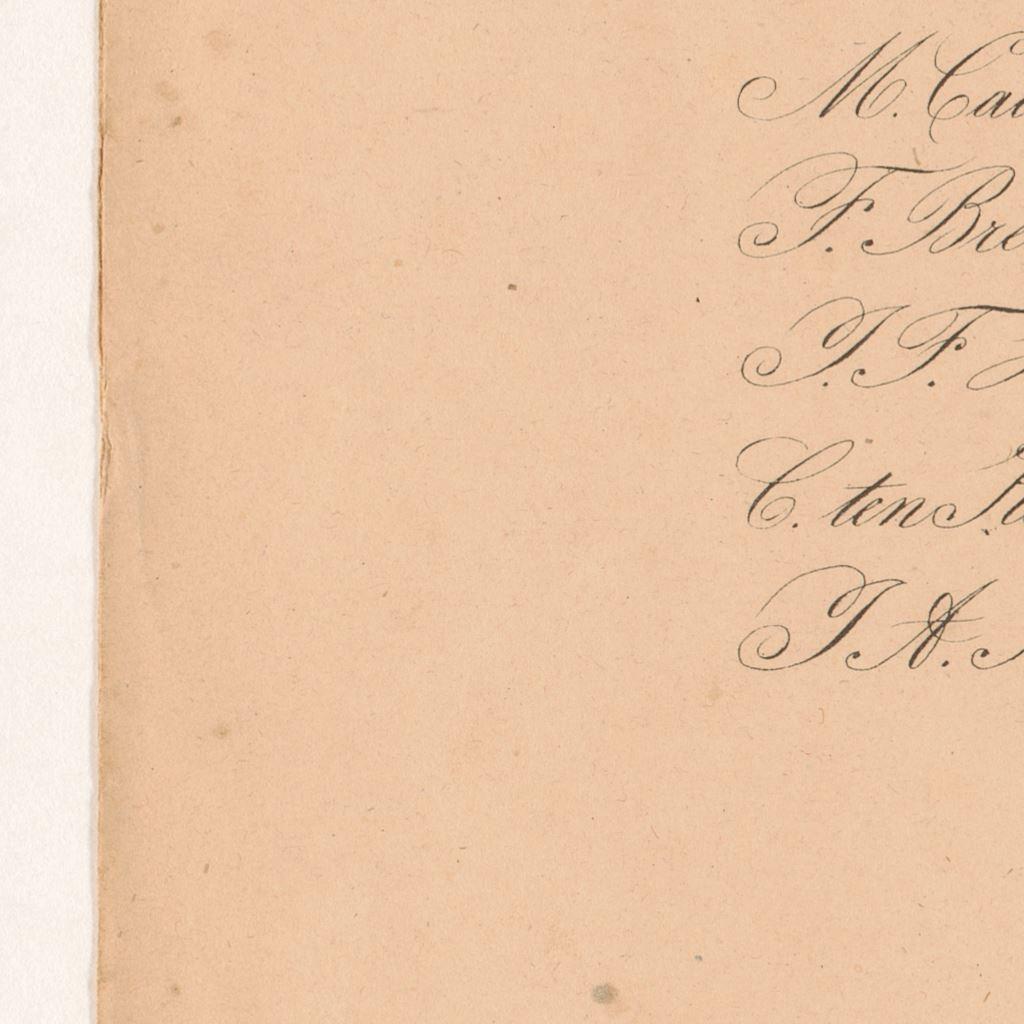 M. Ca
F. Bre
J. F.
C. ten
J. A.